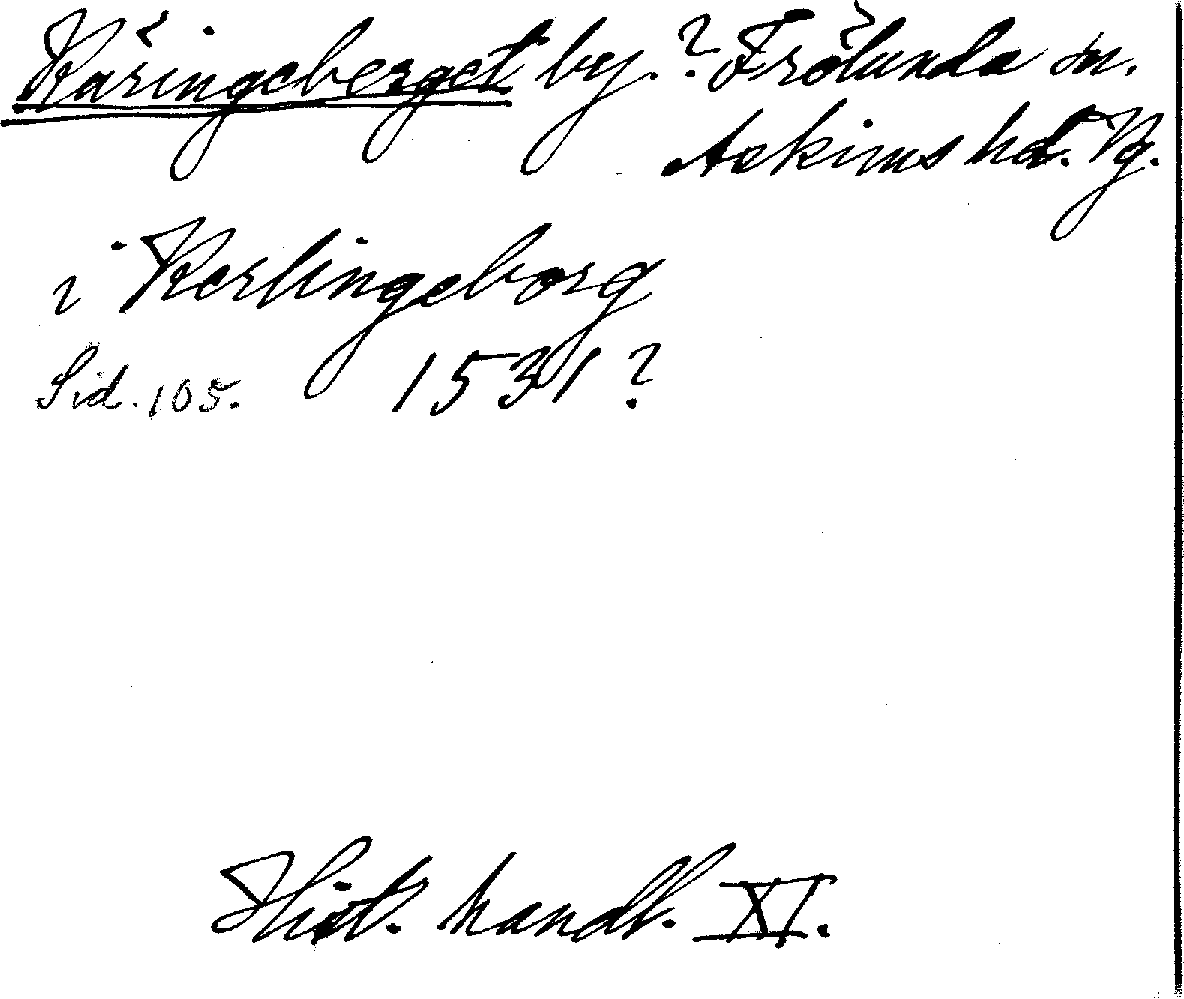 Käringeberget by.? Frölunda sn.
Askims hd. Vg.
i Kerlingeborg
Sid. 105. 1531?
Hist. handl. XI.